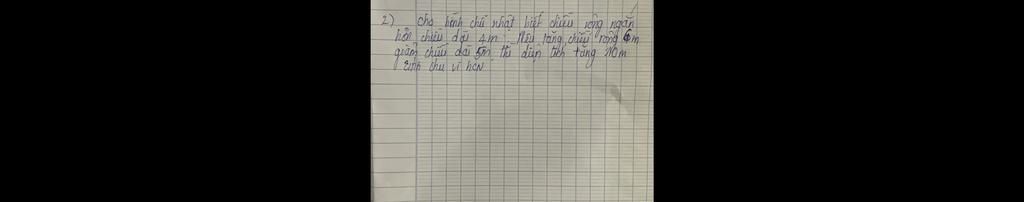 2) Cho hình chữ nhật biết chiều rộng ngắn
hơn chiều dài 4m. Nếu tăng chiều rộng 6m
giảm chiều dài 5m thì diện tích tăng 110m
tính chu vi hcn